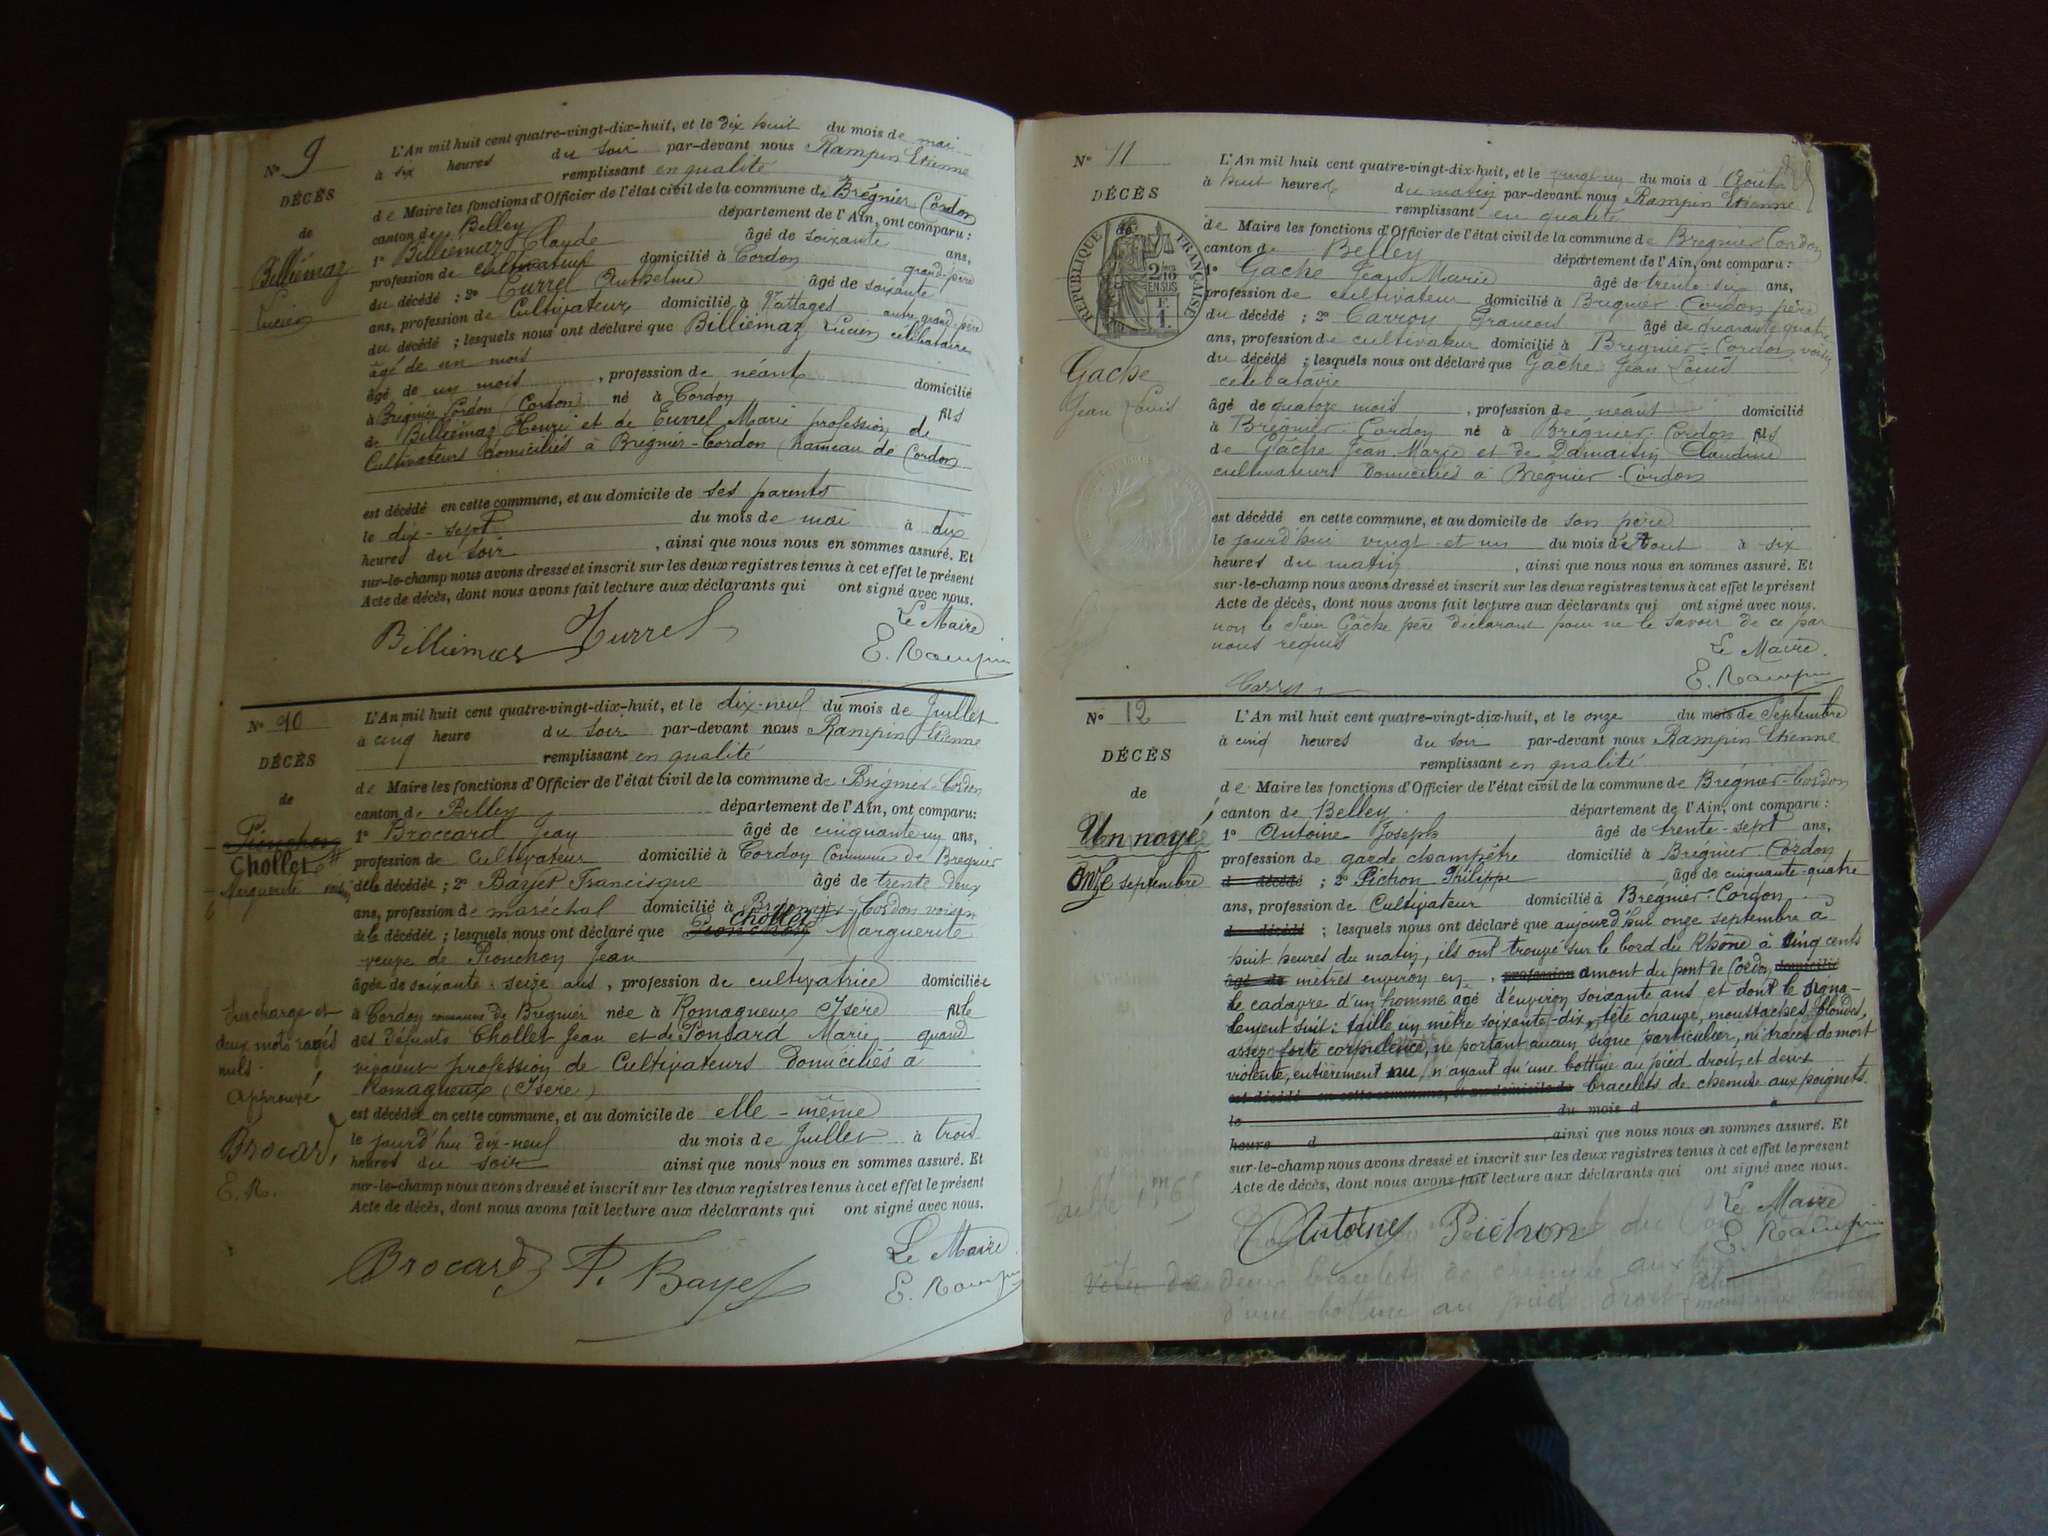 N° 9
DÉCÈS
de
Billiémaz
Lucien
L'An mil huit cent quatre-vingt-dix-huit, et le dix huit du mois de mai
à six heures du soir par-devant nous Rampin Etienne
remplissant en qualité
de Maire les fonctions d'Officier de l'état civil de la commune de Brégnier Cordon
canton de Belley département de l'Ain, ont comparu :
1° Billiémaz Claude âgé de soixante ans,
profession de cultivateur domicilié à Cordon grand-père
du décédé ; 2° Turrel Anthelme âgé de soixante
ans, profession de Cultivateur domicilié à autre grand-père
du décédé ; lesquels nous ont déclaré que Billiémaz Lucien célibataire
âgé de un mois
âgé de un mois , profession de néant domicilié
à Brégnier Cordon (Cordon) né à Cordon fils
de Billiémaz Henri et de Turrel Marie profession de
Cultivateurs domiciliés à Brégnier-Cordon (hameau de Cordon
est décédé en cette commune, et au domicile de ses parents
le dix-sept du mois de mai à dix
heures du soir , ainsi que nous nous en sommes assuré. Et
sur-le-champ nous avons dressé et inscrit sur les deux registres tenus à cet effet le présent
Acte de décès, dont nous avons fait lecture aux déclarants qui ont signé avec nous.
Billiemaz Turrel
Le Maire
E. Rampin
N° 10
DÉCÈS
de
Pionchon
Chollet
Marguerite
L'An mil huit cent quatre-vingt-dix-huit, et le dix-neuf du mois de Juillet
à cinq heure du soir par-devant nous Rampin Etienne
remplissant en qualité
de Maire les fonctions d'Officier de l'état civil de la commune de Brégnier-Cordon
canton de Belley département de l'Ain, ont comparu:
1° Broccard Jean âgé de cinquante un ans,
profession de Cultivateur domicilié à Cordon Commune de Bregnier
de la décédée ; 2° Bayet Francisque âgé de trente deux
ans, profession de maréchal domicilié à Brégnier-Cordon voisin
Chollet
de la décédée ; lesquels nous ont déclaré que Pionchon Marguerite
veuve de Pionchon Jean
âgée de soixante-seize ans , profession de cultivatrice domiciliée
à Cordon commune de Bregnier née à Romagneux Isère fille
des défunts Chollet Jean et de Ponsard Marie quand
vivaient profession de Cultivateurs domiciliés à
Romagneux (Isère)
est décédée en cette commune, et au domicile de elle-même
le jourd'hui dix-neuf du mois de Juillet à trois
heures du soir ainsi que nous nous en sommes assuré. Et
sur-le-champ nous avons dressé et inscrit sur les deux registres tenus à cet effet le présent
Acte de décès, dont nous avons fait lecture aux déclarants qui ont signé avec nous.
Surcharge et
deux mots rayés
nuls
Approuvé
Brocard
E. R.
Brocard F. Bayet
Le Maire
E. Rampin
N° 11
DÉCÈS
de
RÉPUBLIQUE FRANÇAISE
2/10
EN SUS
F.
1.
Gache
Jean Louis
L'An mil huit cent quatre-vingt-dix-huit, et le vingt un du mois d'Août
à huit heures du matin par-devant nous Rampin Etienne
remplissant en qualité
de Maire les fonctions d'Officier de l'état civil de la commune de Brégnier-Cordon
canton de Belley département de l'Ain, ont comparu :
1° Gache Jean Marie âgé de trente-six ans,
profession de cultivateur domicilié à Bregnier-Cordon père
du décédé ; 2° Carron Francois âgé de quarante quatre
ans, profession de cultivateur domicilié à Bregnier-Cordon voisin
du décédé ; lesquels nous ont déclaré que Gâche Jean Louis
célibataire
âgé de quatorze mois , profession de néant domicilié
à Brégnier-Cordon né à Brégnier-Cordon fils
de Gâche Jean Marie et de Damaisin Claudine
cultivateurs domiciliés à Bregnier-Cordon
est décédé en cette commune, et au domicile de son père
le jourd'hui vingt-et un du mois d'Aout à six
heures du matin , ainsi que nous nous en sommes assuré. Et
sur-le-champ nous avons dressé et inscrit sur les deux registres tenus à cet effet le présent
Acte de décès, dont nous avons fait lecture aux déclarants qui ont signé avec nous.
non le Sieur Gâche père déclarant pour ne le savoir de ce par
nous requis
Carron
Le Maire
E. Rampin
N° 12
DÉCÈS
de
Un noyé
Onze septembre
L'An mil huit cent quatre-vingt-dix-huit, et le onze du mois de Septembre
à cinq heures du soir par-devant nous Rampin Etienne
remplissant en qualité
de Maire les fonctions d'Officier de l'état civil de la commune de Brégnier-Cordon
canton de Belley département de l'Ain, ont comparu :
1° Antoine Joseph âgé de trente-sept ans,
profession de garde champêtre domicilié à Bregnier-Cordon
d décédé ; 2° Pichon Philippe , âgé de cinquante-quatre
ans, profession de Cultivateur domicilié à Brégnier-Cordon
d décédé ; lesquels nous ont déclaré que aujourd'hui onze septembre à
huit heures du matin, ils ont trouvé sur le bord du Rhône à cinq cents
âgé de mètres environ en , profession amont du pont de Cordon, domicilié
le cadavre d'un homme agé d'environ soixante ans et dont le signa-
lement suit : taille un mètre soixante-dix, tête chauve, moustaches blondes,
assez forte corpulence, ne portant aucun signe particulier, ni traces de mort
violente, entièrement nu, n'ayant qu'une bottine au pied droit, et deux
est décédé en cette commune, et au domicile de bracelets de chemise aux poignets.
le du mois d à
heure d , ainsi que nous nous en sommes assuré. Et
sur-le-champ nous avons dressé et inscrit sur les deux registres tenus à cet effet le présent
Acte de décès, dont nous avons fait lecture aux déclarants qui ont signé avec nous.
taille 1m65
Antoine Pichon
Le Maire
E. Rampin
vêtu de deux bracelets de chemise aux
d'une bottine au pied droit